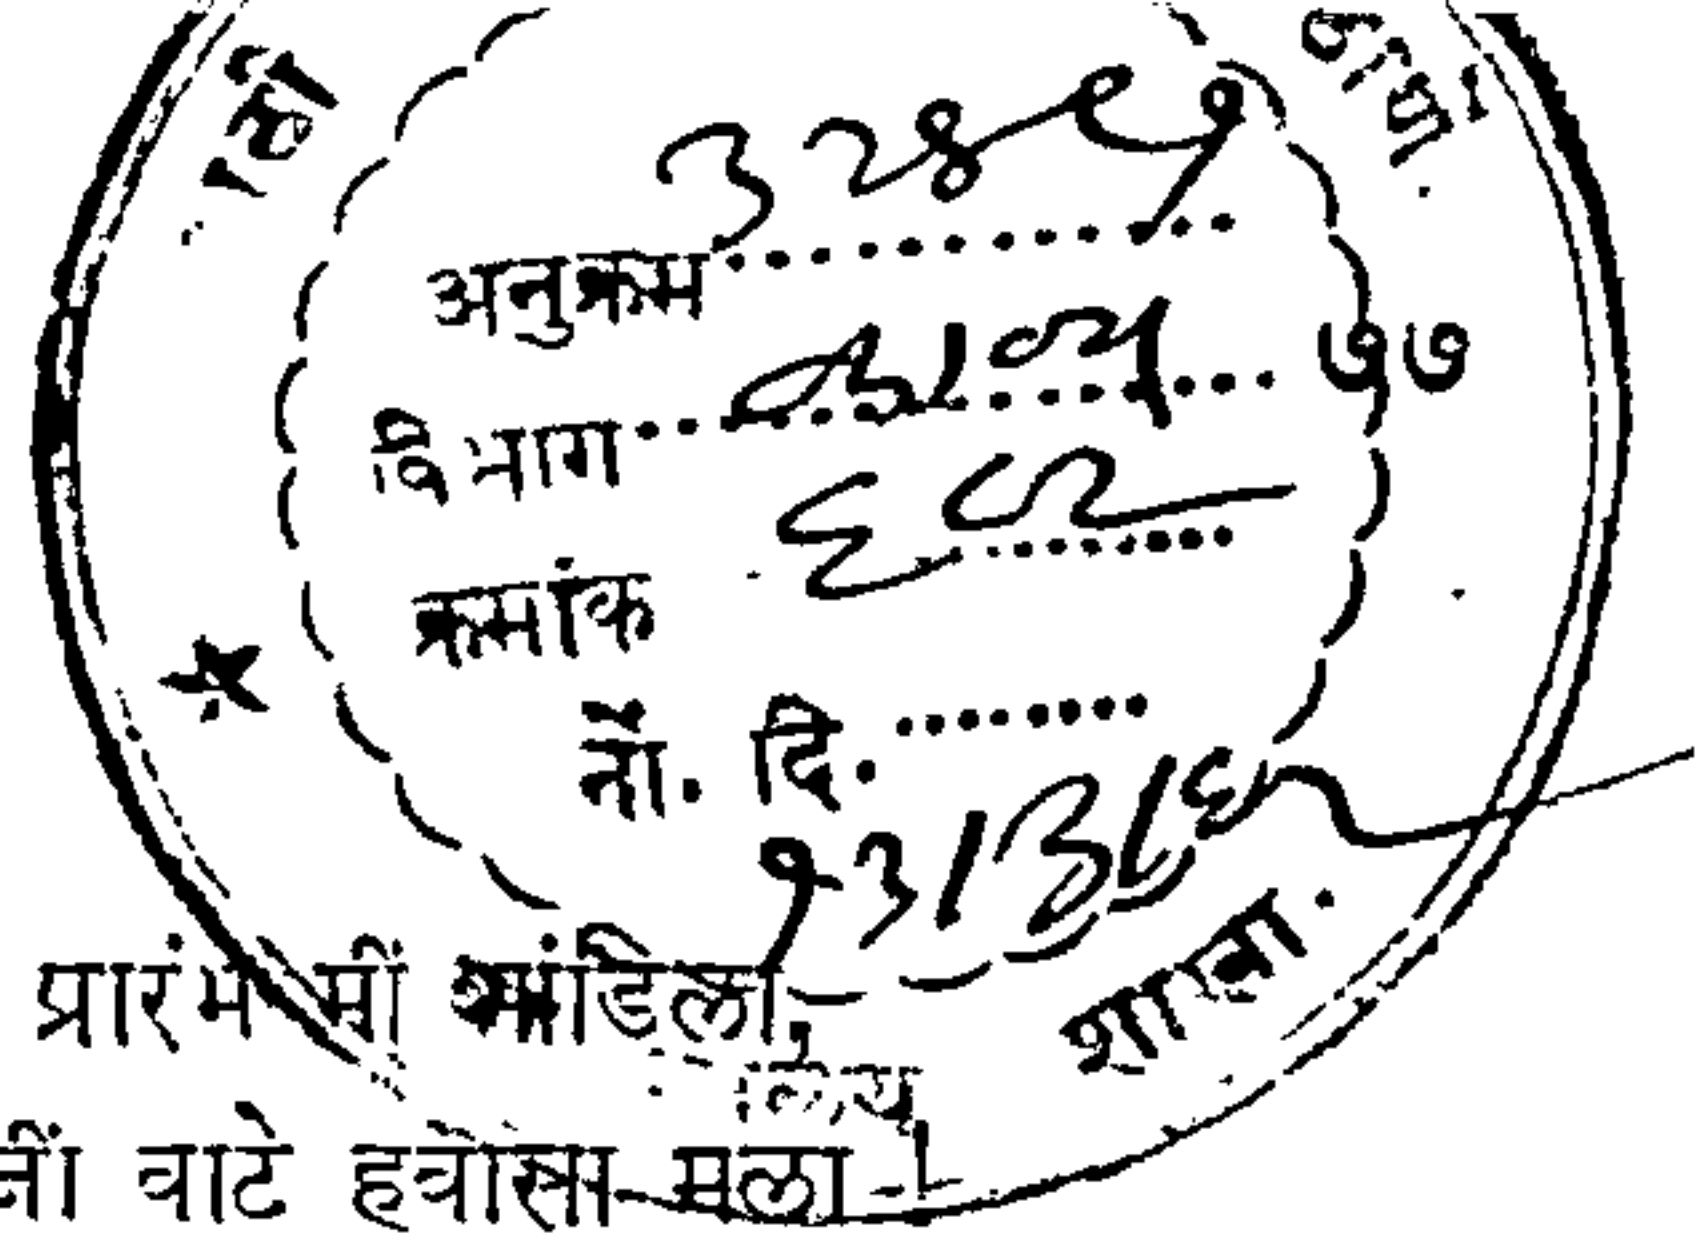 अनुक्रम ३२४९१
विभाग काव्य ७७
क्रमांक ६८२
नों. दि.
१३।३।६
शाखा.
प्रारंभ मीं मांडिला;
वाटे हवोसा मला !